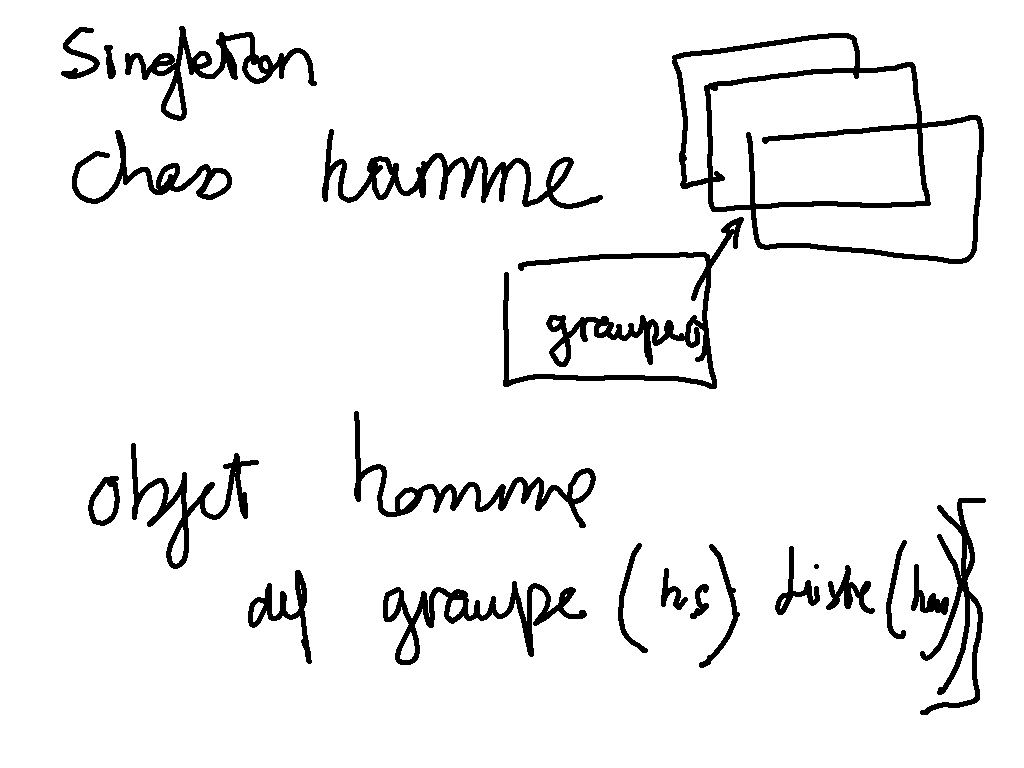 Singleton
class homme
groupe()
objet homme
def groupe (hs) Liste (hom)